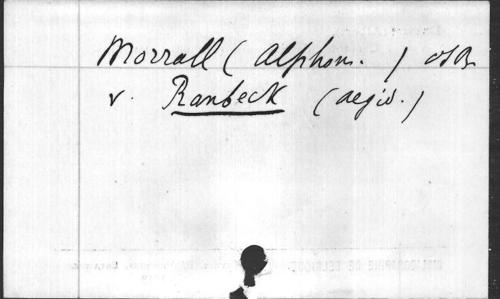 Morrall (Alphons.) OSB
v. Ranbeck (Aegid.)